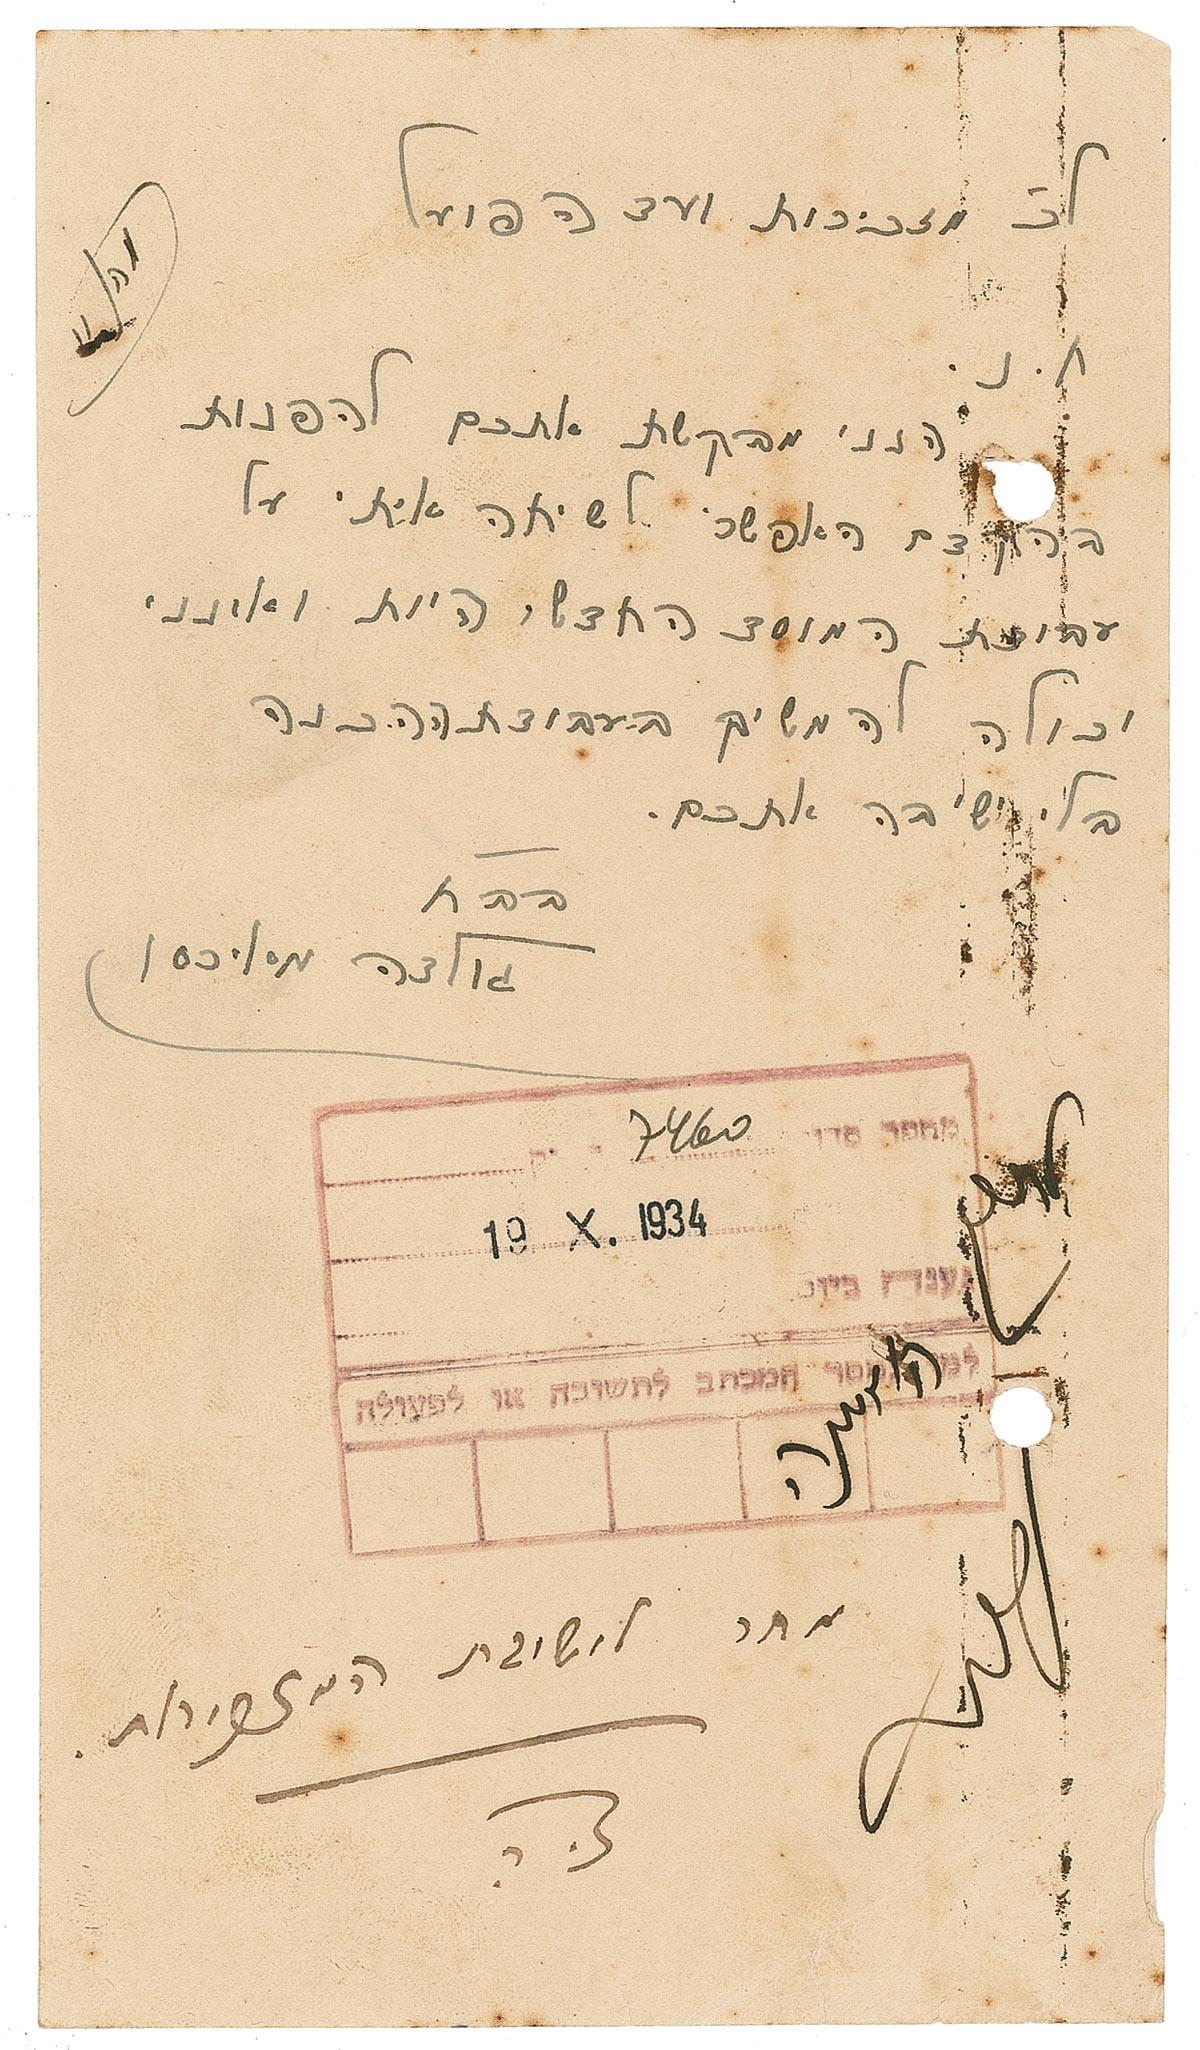 לכ' מזכירות ועד הפועל
ח. נ.
הנני מבקשת אתכם להפנות
בהקדם האפשרי לשיחה איתי על
עבודת המוסד החדש, היות ואינני
יכולה להמשיך בעבודת ההכנה
בלי ישיבה אתכם.
בבח
גולדה מאירסון
מספר סדורי 7460
19 X. 1934
נענה ביום
למי נמסר המכתב לתשובה או לפעולה
מחר לישיבת המזכירות.
ז. ר.